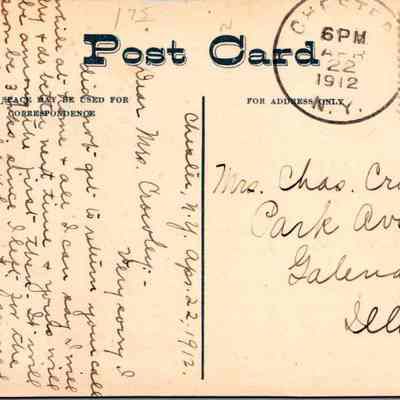 Post Card
CHESTER
6 PM
APR
22
1912
N.Y.
SPACE MAY BE USED FOR
CORRESPONDENCE
FOR ADDRESS ONLY
Chester, N.Y. Apr. 22, 1912.
Dear Mrs. Crowley:-
Very sorry I
did not get to return your call
while at home & all I can say I will
try & do better next time & yours will
be among the first that. It will
soon be 3 since I left for the
Mrs. Chas. Cro
Park Av
Galena
Ill